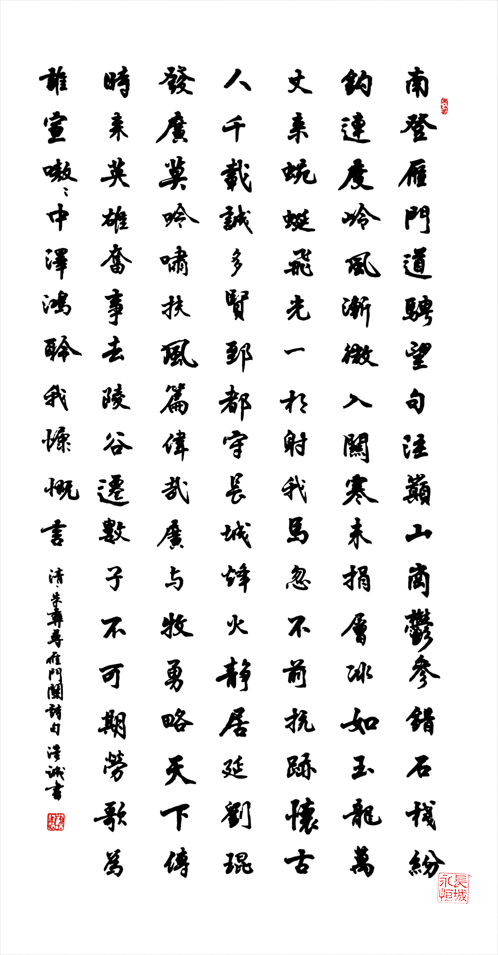 南登雁門道騁望句注巔山崗鬱參錯石棧紛
鈎連度岭風漸微入關寒未捐層冰如玉龍萬
丈來蜿蜒飛光一相射我馬忽不前抗跡懷古
人千載誠多賢郅都守長城烽火靜居延劉琨
發廣莫吟嘯扶風篇偉哉廣与牧勇略天下傳
時來英雄奮事去陵谷遷數子不可期勞歌為
誰宣嗷〻中澤鴻聆我慷慨言
清朱彝尊雁門關詩句誠書
長城永恒